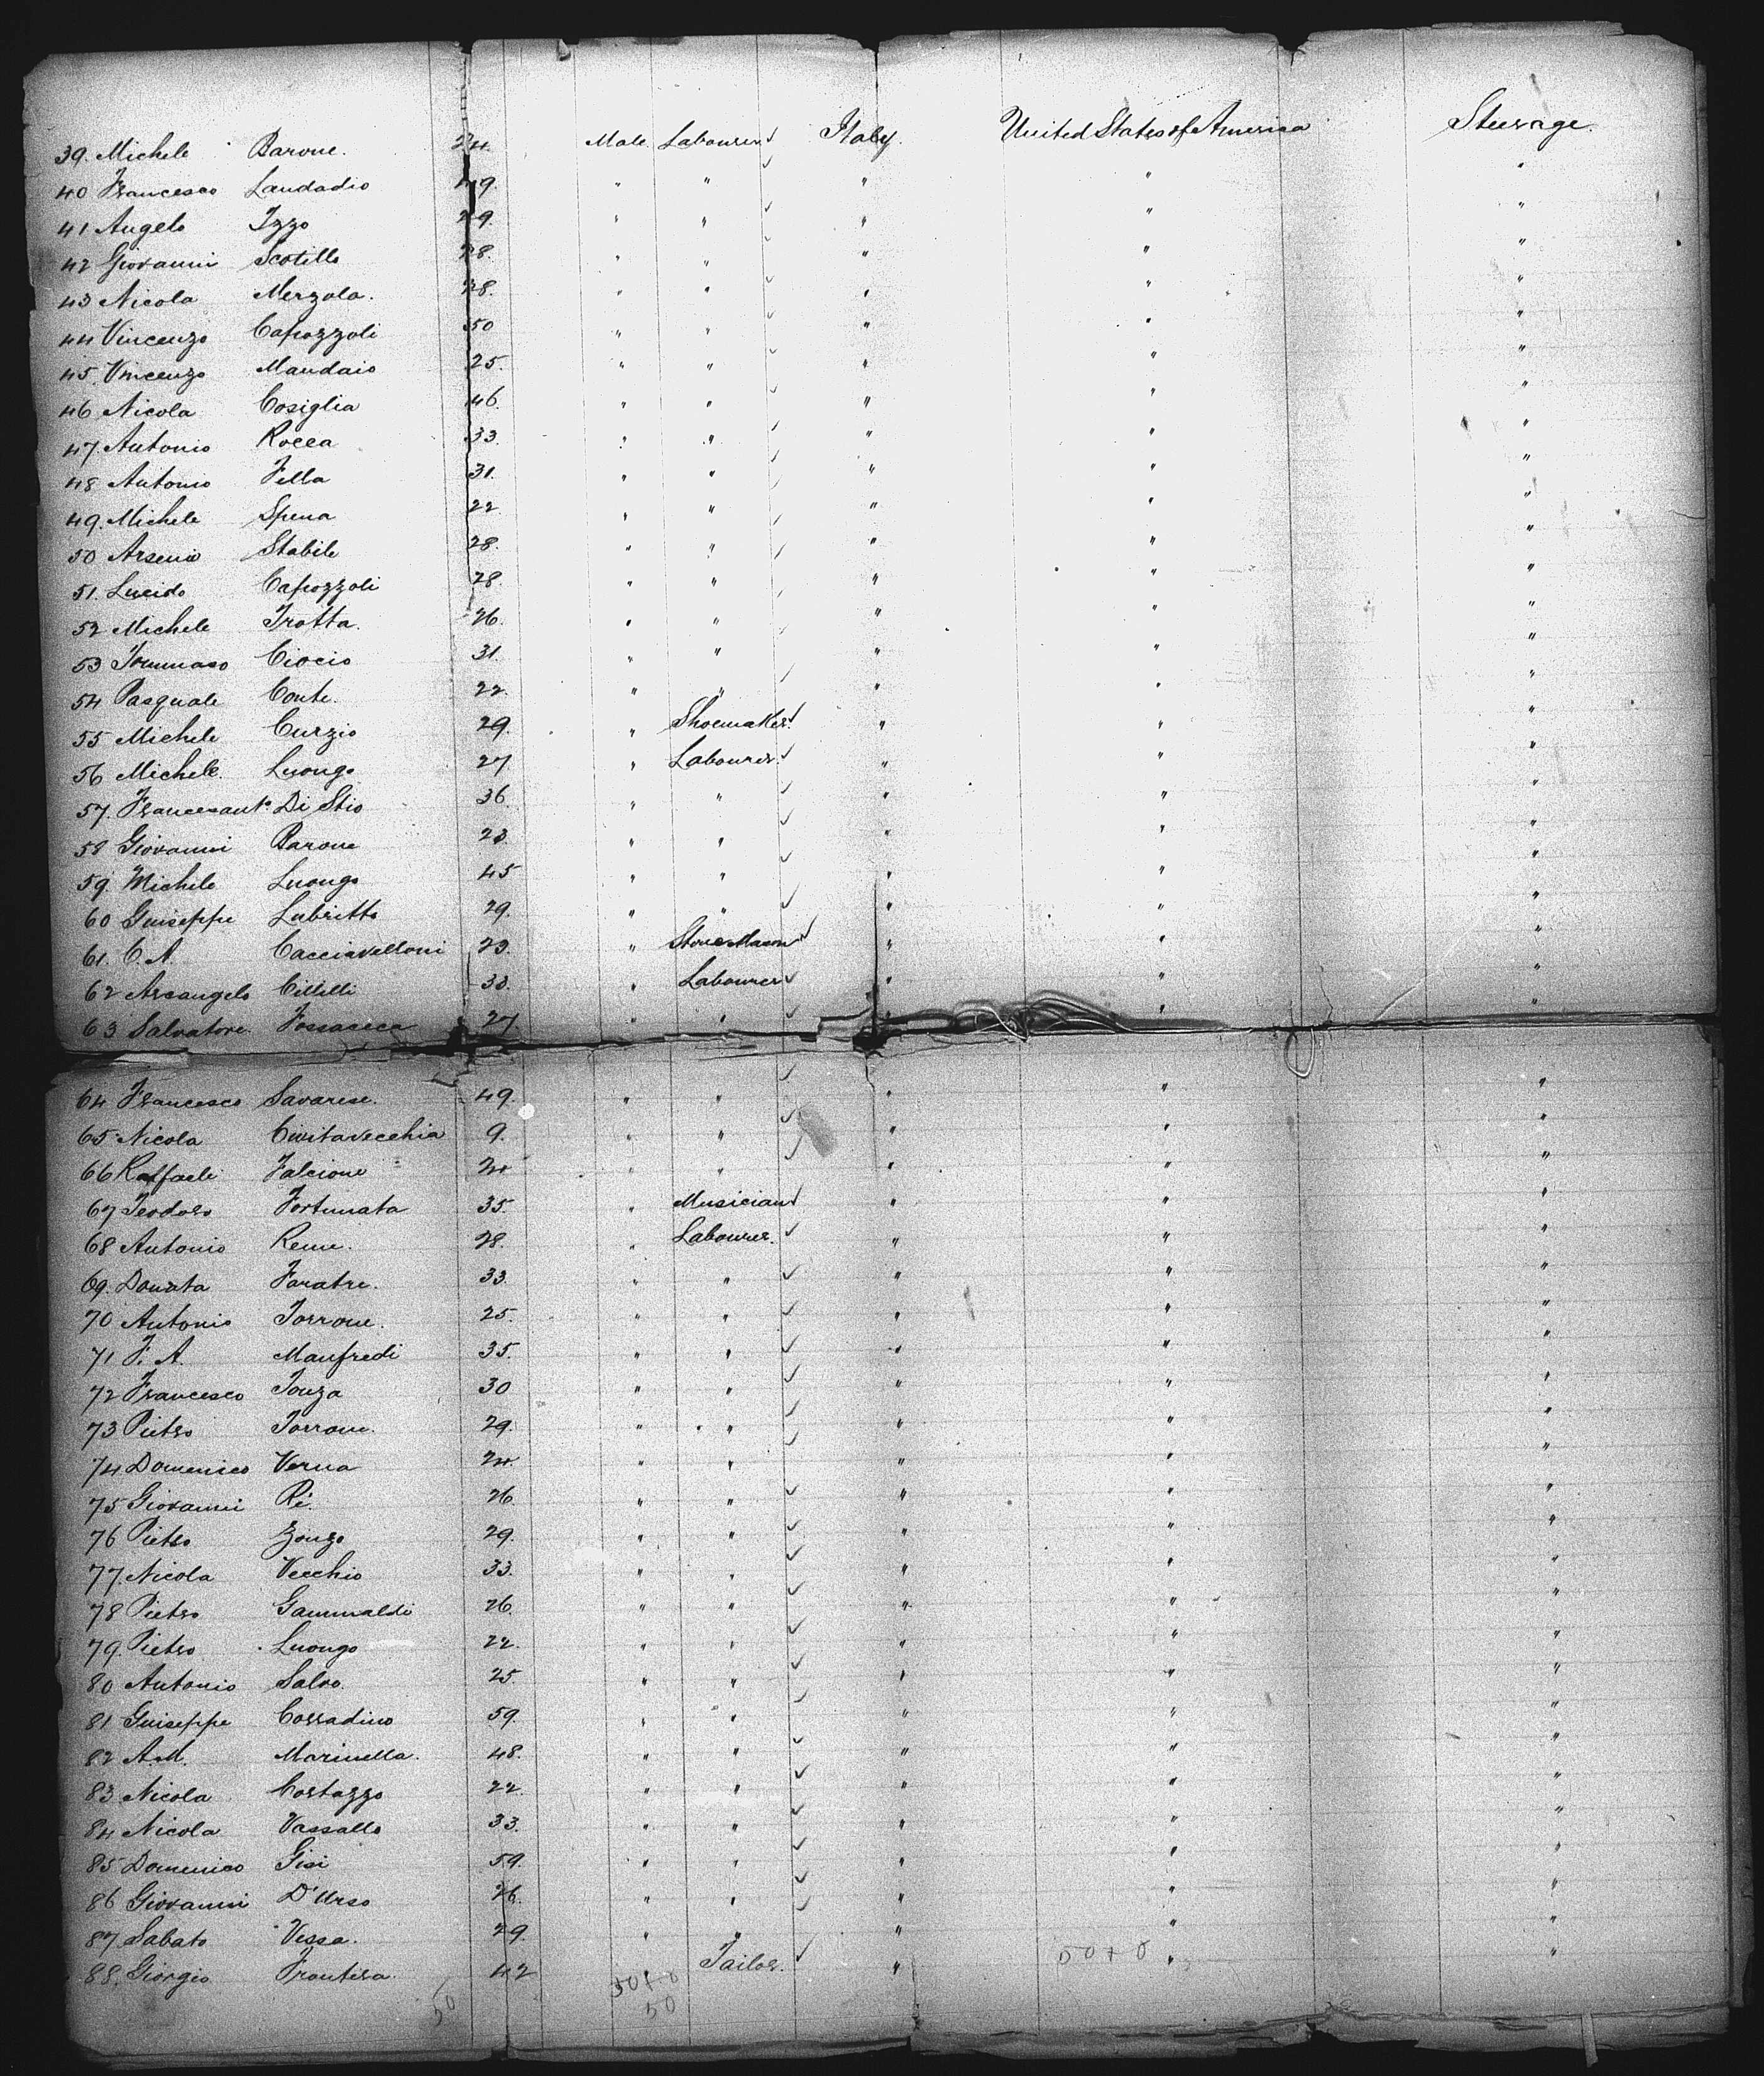 39. Michele Barone. 24. Male Labourer Italy. United States of America Steerage.
40 Francesco Laudadio 49. " " " " "
41 Angelo Izzo 29. " " " " "
42 Giovanni Scotillo 28. " " " " "
43 Nicola Merzola. 28. " " " " "
44 Vincenzo Capozzoli 50 " " " " "
45. Vincenzo Mandaio 25. " " " " "
46 Nicola Cosiglia 46. " " " " "
47. Antonio Rocca 33. " " " " "
48 Antonio Fella 31. " " " " "
49. Michele Spena 22 " " " " "
50 Arsenio Stabile 28. " " " " "
51. Lucido Capozzoli 28. " " " " "
52 Michele Trotta. 26. " " " " "
53 Tommaso Ciocio 31. " " " " "
54 Pasquale Conte. 22. " " " " "
55 Michele Curzio 29. " Shoemaker. " " "
56 Michele Luongo 27 " Labourer. " " "
57. Francesant° Di Stio 36 " " " " "
58 Giovanni Barone 23. " " " " "
59. Michele Luongo 45 " " " " "
60 Guiseppe Lubritto 29. " " " " "
61. C. A. Cacciavelloni 23. " Stone Mason " " "
62 Arcangelo Cillelli 33. " Labourer " " "
63 Salvatore Fossaceca 27 " " " " "
64 Francesco Savarese. 49. " " " " "
65 Nicola Civitavecchia 9. " " " " "
66 Raffaele Falcione 24 " " " " "
67 Teodoro Fortunata 35. " Musician " " "
68 Antonio Reme. 28. " Labourer. " " "
69. Donata Foratre. 33. " " " " "
70 Antonio Torrone. 25. " " " " "
71 F. A. Manfredi 35. " " " " "
72 Francesco Touza 30 " " " " "
73 Pietro Torrone. 29. " " " " "
74 Domenico Verna 24. " " " " "
75 Giovanni Ré. 26. " " " " "
76 Pietro Zonzo 29. " " " " "
77. Nicola Vecchio 33. " " " " "
78 Pietro Gammaldi 26. " " " " "
79. Pietro Luongo 22. " " " " "
80 Antonio Salvo. 25. " " " " "
81 Guiseppe Corradino 59. " " " " "
82 A.M. Marinella. 48. " " " " "
83. Nicola Cortazzo 22. " " " " "
84 Nicola Vassallo 33. " " " " "
85 Domenico Gisi 59. " " " " "
86 Giovanni D'Urso 26. " " " " "
87. Sabato Vessa. 29. " " " " "
88. Giorgio Frontera. 42 " Tailor. " 50+0 " "
50 50+0
50